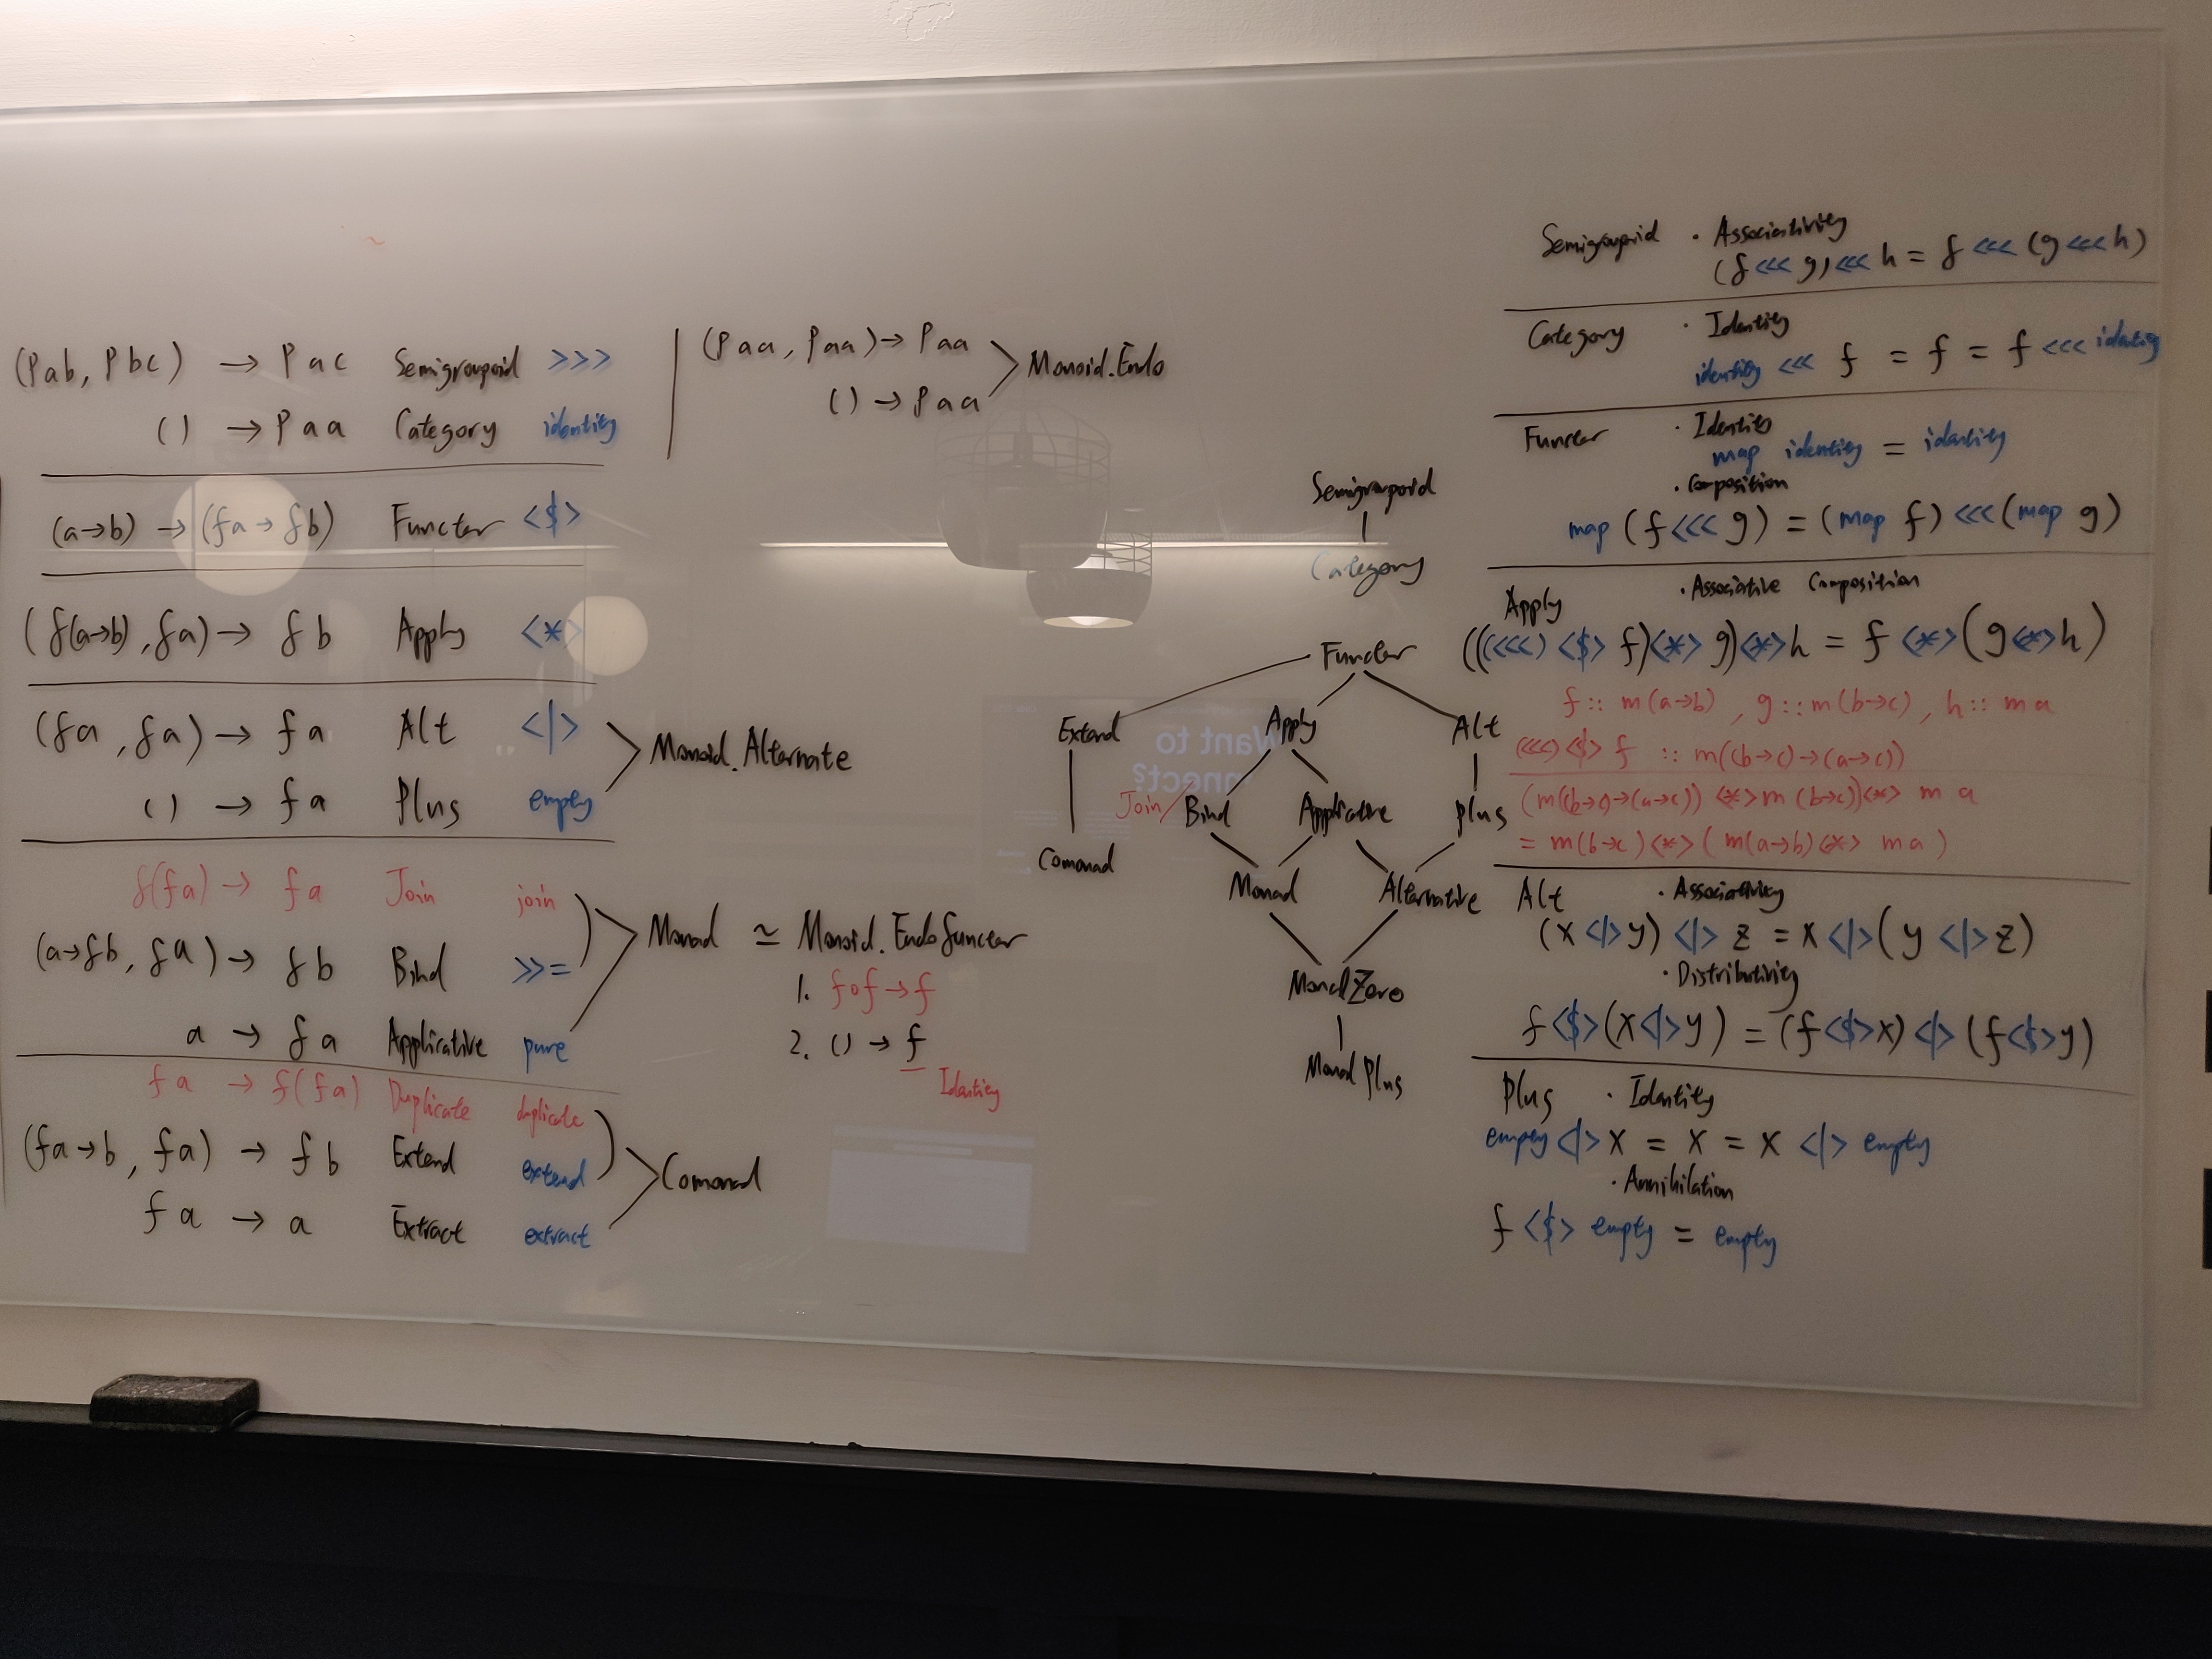 (Pab, Pbc) → Pac Semigroupoid >>>
() → Paa Category identity
(a→b) → (fa→fb) Functor <$>
(f(a→b), fa) → fb Apply <*>
(fa, fa) → fa Alt <|>
() → fa Plus empty
Monoid.Alternate
f(fa) → fa Join join
(a→fb, fa) → fb Bind >>=
a → fa Applicative pure
Monad ≃ Monoid.Endofunctor
1. f∘f→f
2. () → f
Identity
fa → f(fa) Duplicate duplicate
(fa→b, fa) → fb Extend extend
fa → a Extract extract
Comonad
(Paa, Paa) → Paa
() → Paa
Monoid.Endo
Semigroupoid
Category
Functor
Extend Apply Alt
Join/Bind Applicative Plus
Comonad Monad Alternative
MonadZero
MonadPlus
Want to
nnect?
Semigroupoid · Associativity
(f <<< g) <<< h = f <<< (g <<< h)
Category · Identity
identity <<< f = f = f <<< identity
Functor · Identity
map identity = identity
· Composition
map (f <<< g) = (map f) <<< (map g)
Apply · Associative Composition
(((<<<) <$> f) <*> g) <*> h = f <*> (g <*> h)
f :: m(a→b), g :: m(b→c), h :: m a
(<<<) <$> f :: m((b→c)→(a→c))
(m((b→c)→(a→c)) <*> m(b→c)) <*> m a
= m(b→c) <*> (m(a→b) <*> m a)
Alt · Associativity
(x <|> y) <|> z = x <|> (y <|> z)
· Distributivity
f <$> (x <|> y) = (f <$> x) <|> (f <$> y)
Plus · Identity
empty <|> x = x = x <|> empty
· Annihilation
f <$> empty = empty